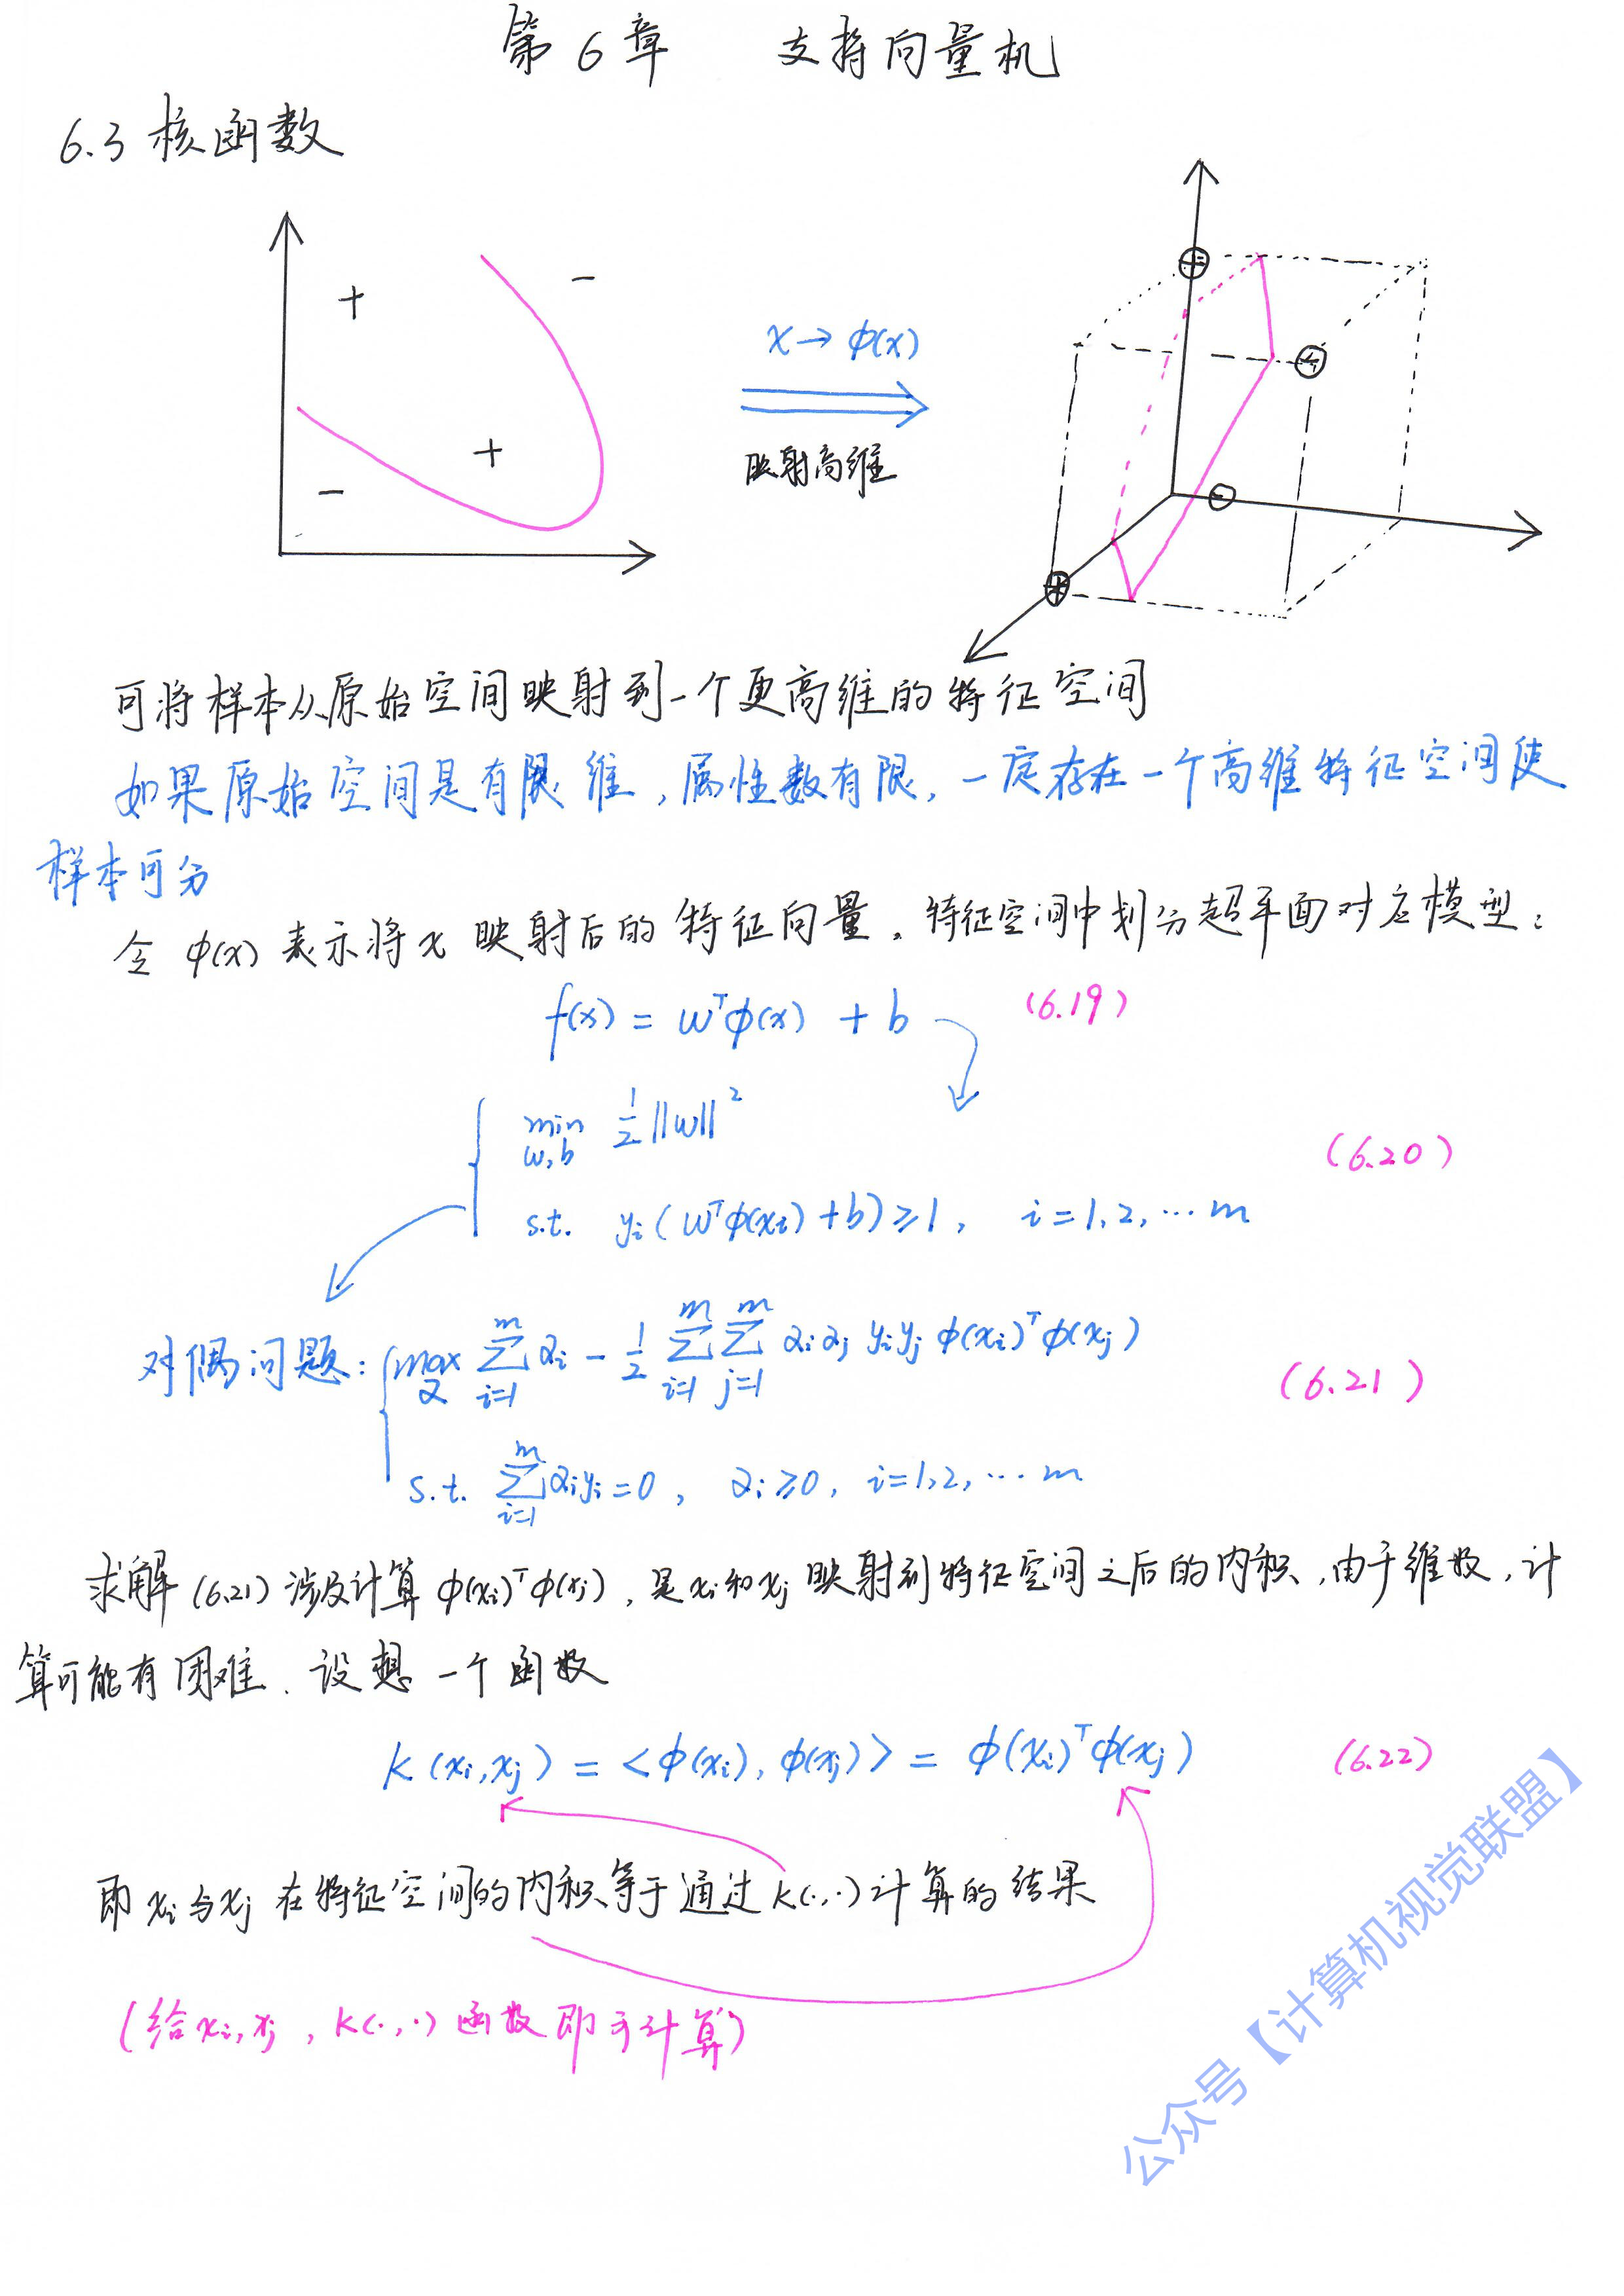 第6章 支持向量机
6.3 核函数
+
−
x → φ(x)
映射高维
+
−
+
−
−
+
可将样本从原始空间映射到一个更高维的特征空间
如果原始空间是有限维,属性数有限,一定存在一个高维特征空间使
样本可分
令 φ(x) 表示将 x 映射后的特征向量。特征空间中划分超平面对应模型:
f(x) = wᵀφ(x) + b (6.19)
min w,b ½||w||² (6.20)
s.t. yᵢ(wᵀφ(xᵢ)+b)≥1, i=1,2,…m
对偶问题: max α ∑ᵢ₌₁ᵐ αᵢ − ½ ∑ᵢ₌₁ᵐ ∑ⱼ₌₁ᵐ αᵢαⱼ yᵢyⱼ φ(xᵢ)ᵀφ(xⱼ) (6.21)
s.t. ∑ᵢ₌₁ᵐ αᵢyᵢ=0, αᵢ≥0, i=1,2,…m
求解(6.21)涉及计算φ(xᵢ)ᵀφ(xⱼ),是xᵢ和xⱼ映射到特征空间之后的内积,由于维数,计
算可能有困难.设想一个函数
K(xᵢ,xⱼ) = <φ(xᵢ),φ(xⱼ)> = φ(xᵢ)ᵀφ(xⱼ) (6.22)
即xᵢ与xⱼ在特征空间的内积等于通过K(·,·)计算的结果
(给xᵢ,xⱼ,K(·,·)函数即可计算)
公众号【计算机视觉联盟】